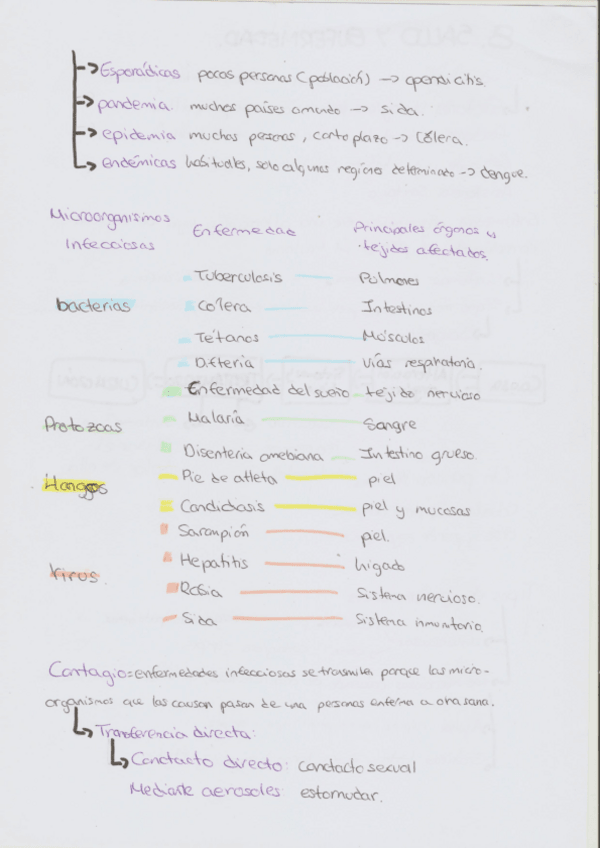 Esporádicas pocas personas (población) -> apendicitis.
pandemia. muchos países o mundo -> sida.
epidemia muchas personas, corto plazo -> Cólera.
endémicas habituales, solo algunas regiones determinado -> dengue.
Microorganismos Infecciosas Enfermedad Principales órganos y tejidos afectados.
bacterias
Tuberculosis Pulmones
Colera Intestinos
Tétanos Músculos
Difteria Vías respiratoria.
Protozoas
Enfermedad del sueño tejido nervioso
Malaria Sangre
Disenteria amebiana Intestino grueso
Hongos
Pie de atleta piel
Candidiasis piel y mucosas
Virus.
Sarampión piel.
Hepatitis higado
Rabia Sistema nervioso.
Sida Sistema inmunitario.
Contagio=enfermedades infecciosas se trasmiten porque los micro-
organismos que las causan pasan de una personas enferma a otra sana.
Transferencia directa:
Conctacto directo: conctacto sexual
Mediante aerosoles: estornudar.